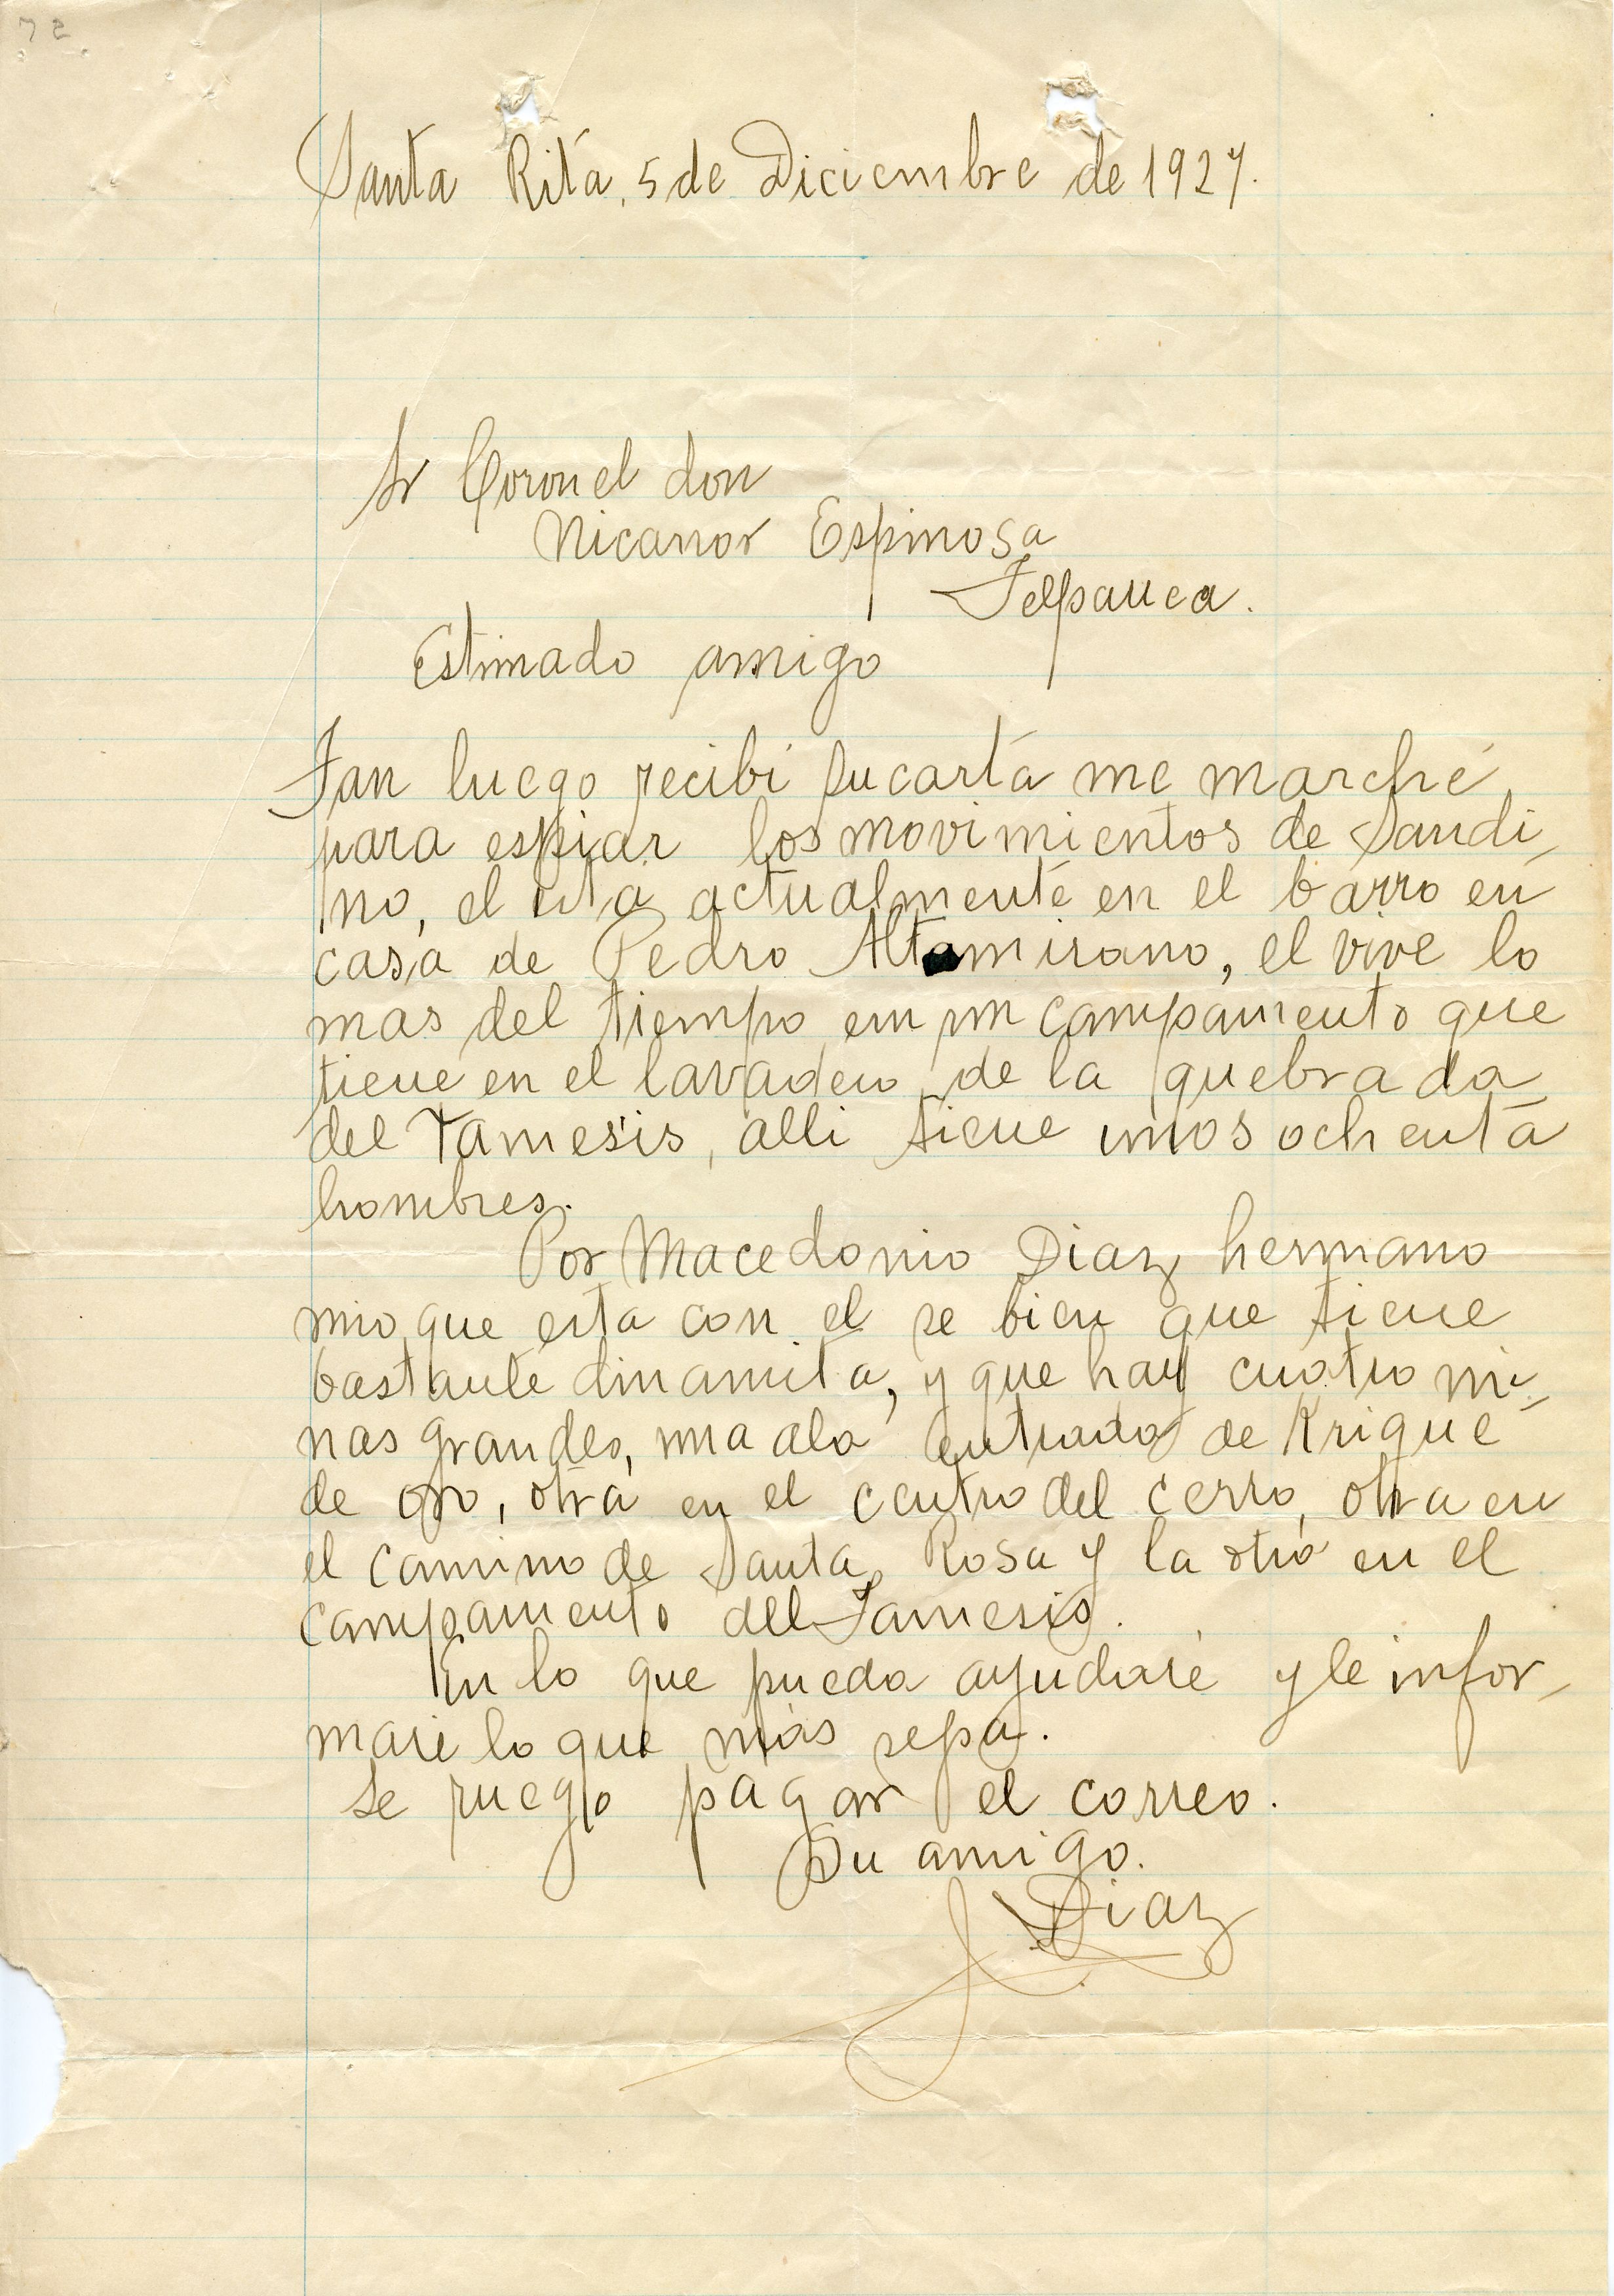 Santa Rita, 5 de Diciembre de 1927.
Sr Coronel don
Nicanor Espinosa
Telpaneca.
Estimado amigo
Tan luego recibi su carta me marché
para espiar los movimientos de Sandi-
no, el esta actualmente en el barro en
casa de Pedro Altamirano, el vive lo
mas del tiempo en un campamento que
tiene en el lavadero de la quebrada
del Tamesis, alli tiene unos ochenta
hombres.
Por Macedonio Diaz hermano
mio que esta con el se bien que tiene
bastante dinamita, y que hay cuatro mi-
nas grandes, una a la entrada de Krique
de oro, otra en el centro del cerro, otra en
el camino de Santa Rosa y la otra en el
campamento del Tamesis.
En lo que pueda ayudaré y le infor-
maré lo que más sepa.
Se ruego pagar el correo.
Su amigo.
Diaz